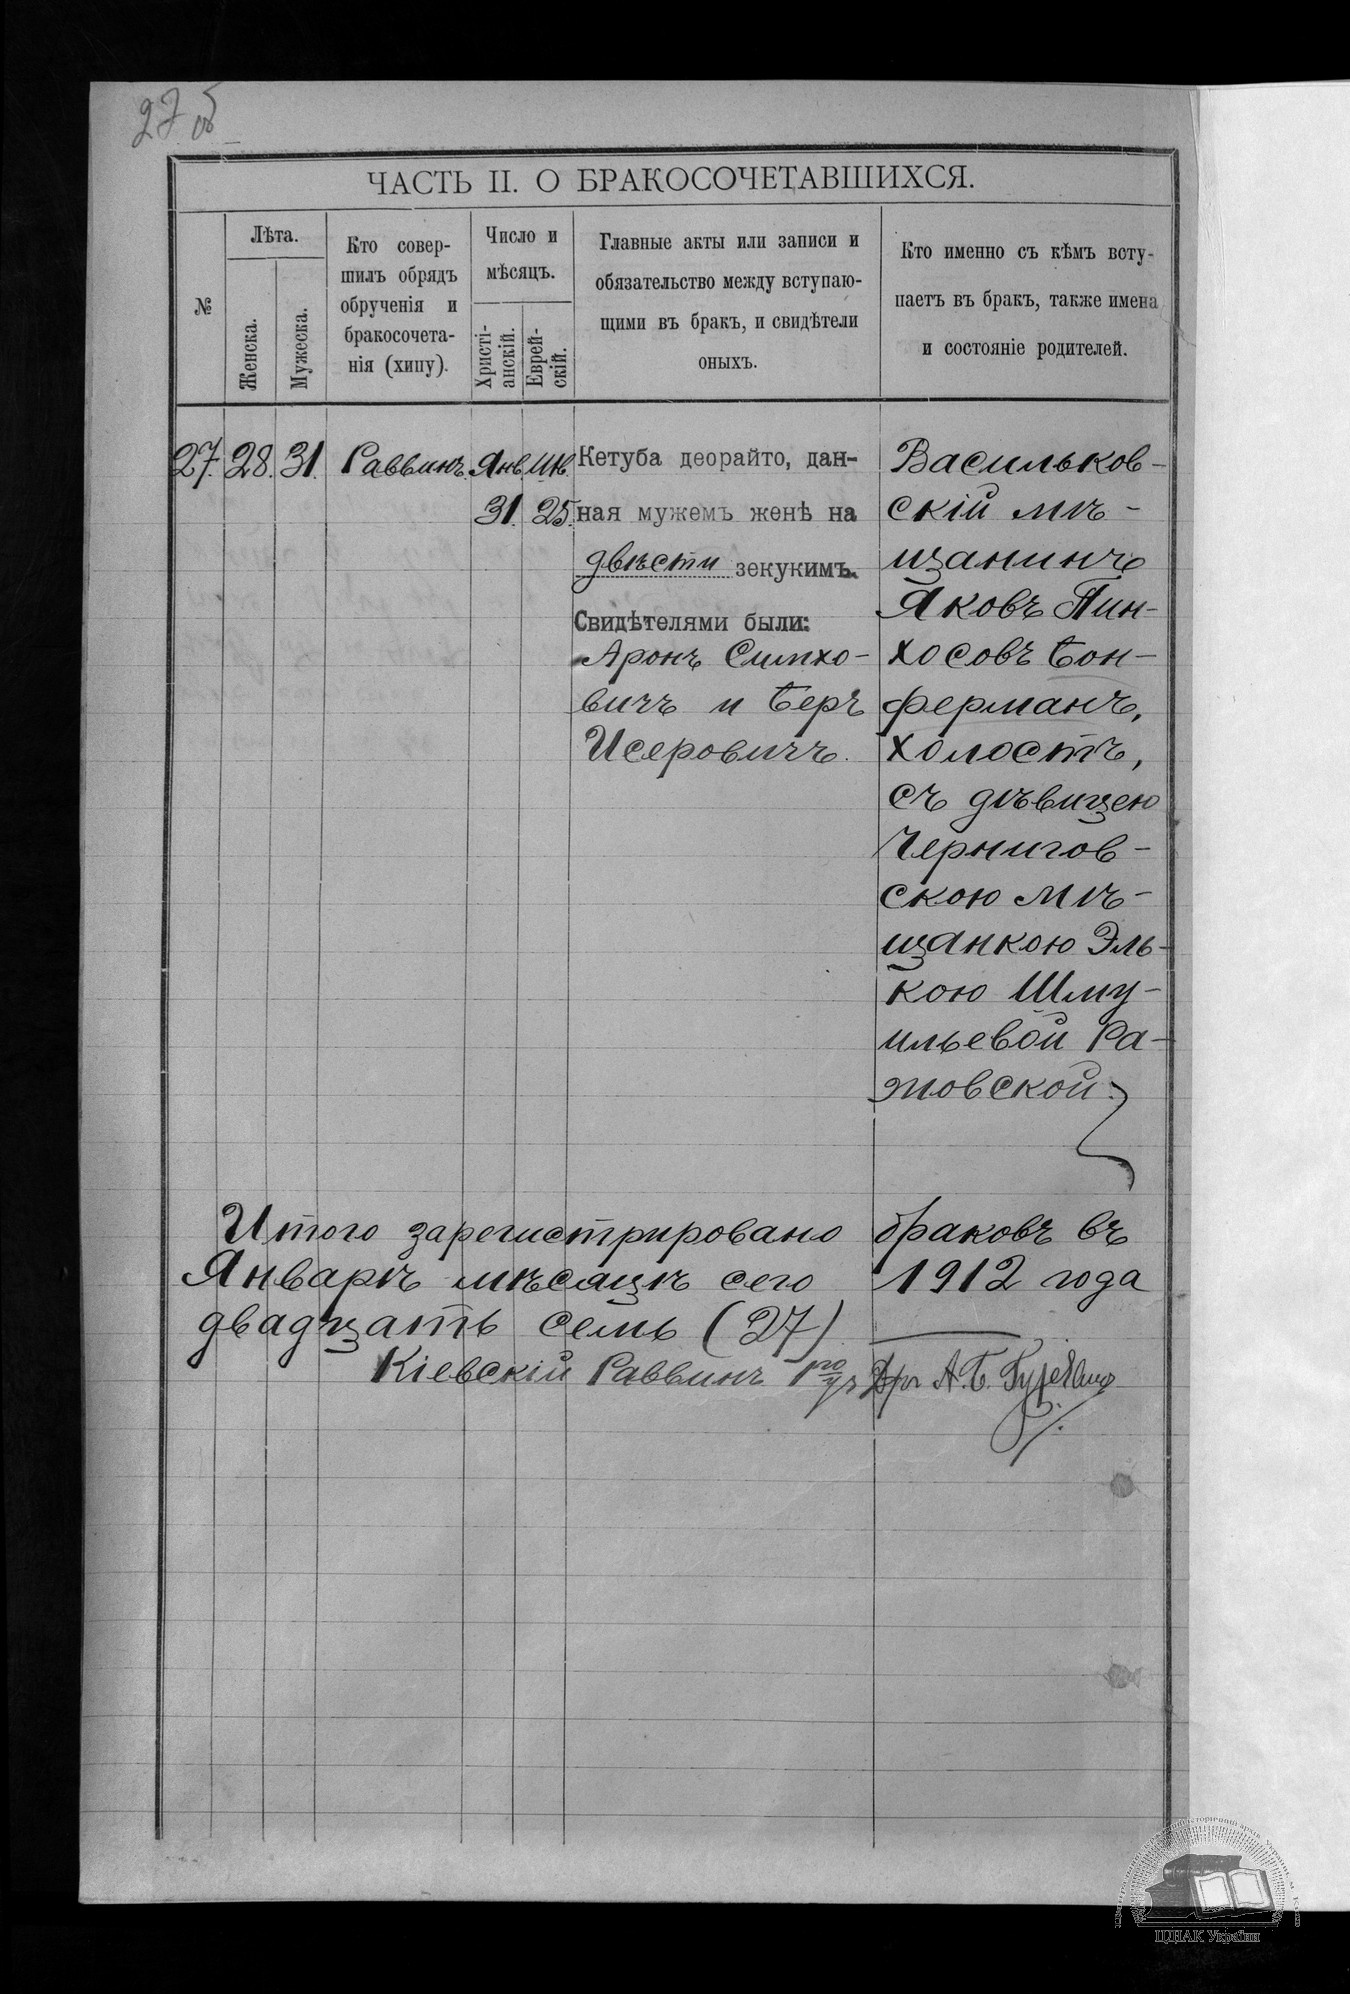 27 об
ЧАСТЬ II. О БРАКОСОЧЕТАВШИХСЯ.
№
Лѣта.
Женска.
Мужеска.
Кто совер-
шилъ обрядъ
обрученія и
бракосочета-
нія (хипу).
Число и
мѣсяцъ.
Христі-
анскій.
Еврей-
скій.
Главные акты или записи и
обязательство между вступаю-
щими въ бракъ, и свидѣтели
оныхъ.
Кто именно съ кѣмъ всту-
паетъ въ бракъ, также имена
и состояніе родителей.
27. 28. 31. Раввинъ. Янв. Шв.
31. 25.
Кетуба деорайто, дан-
ная мужемъ женѣ на
двѣсти зекукимъ.
Свидѣтелями были:
Аронъ Симхо-
вичъ и Беръ
Исеровичъ.
Васильков-
скій мѣ-
щанинъ
Яковъ Пин-
хосовъ Бон-
ферманъ,
холостъ,
съ дѣвицею
Чернигов-
скою мѣ-
щанкою Эль-
кою Шму-
ильевой Ра-
повской.
Итого зарегистрировано браковъ въ
Январѣ мѣсяцѣ сего 1912 года
двадцать семь (27)
Кіевскій Раввинъ А. Б. Гуревичъ
ЦДІАК України